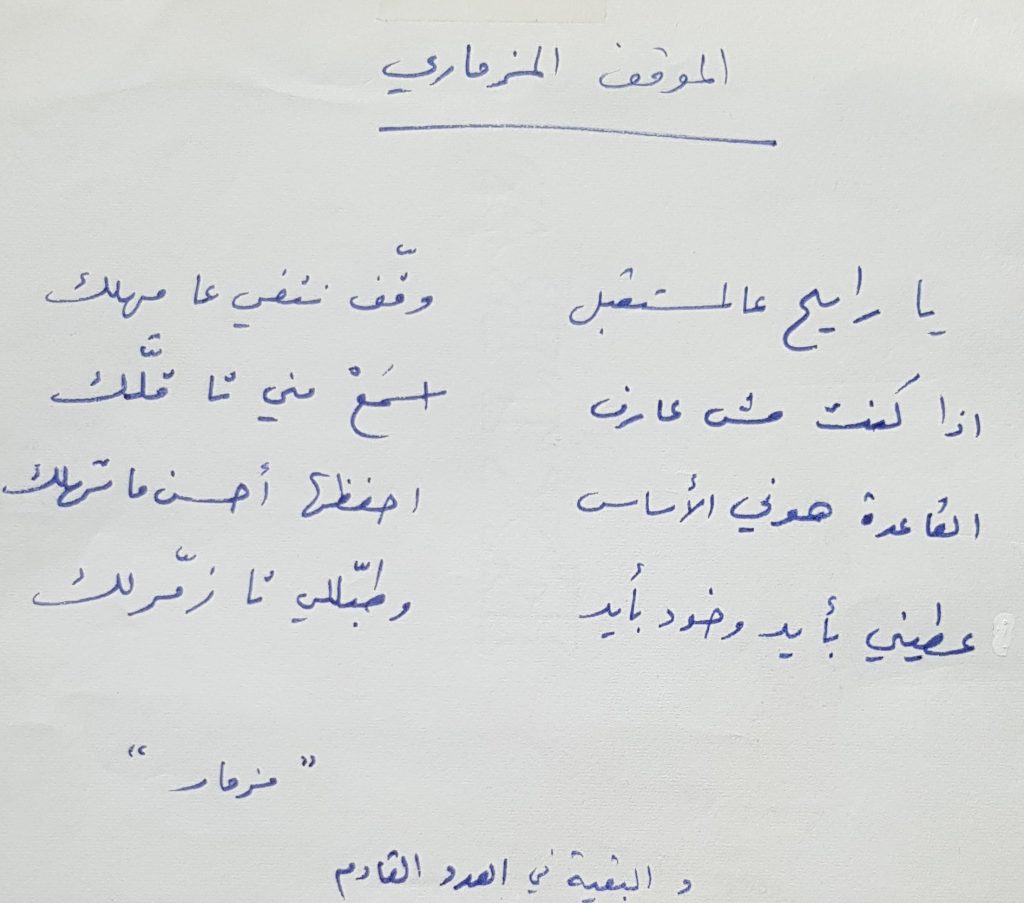 الموقف المزماري
يا رايح عالمستقبل وقّف نتفي عا مهلك
اذا كنت مش عارف اسمَعْ مني تا قلَّك
القاعدة هوني الأساس احفظها أحسن ما تهلك
عطيني بأيد وخود بأيد وطبّللي تا زمّرلك
" مزمار "
و البقية في العدد القادم